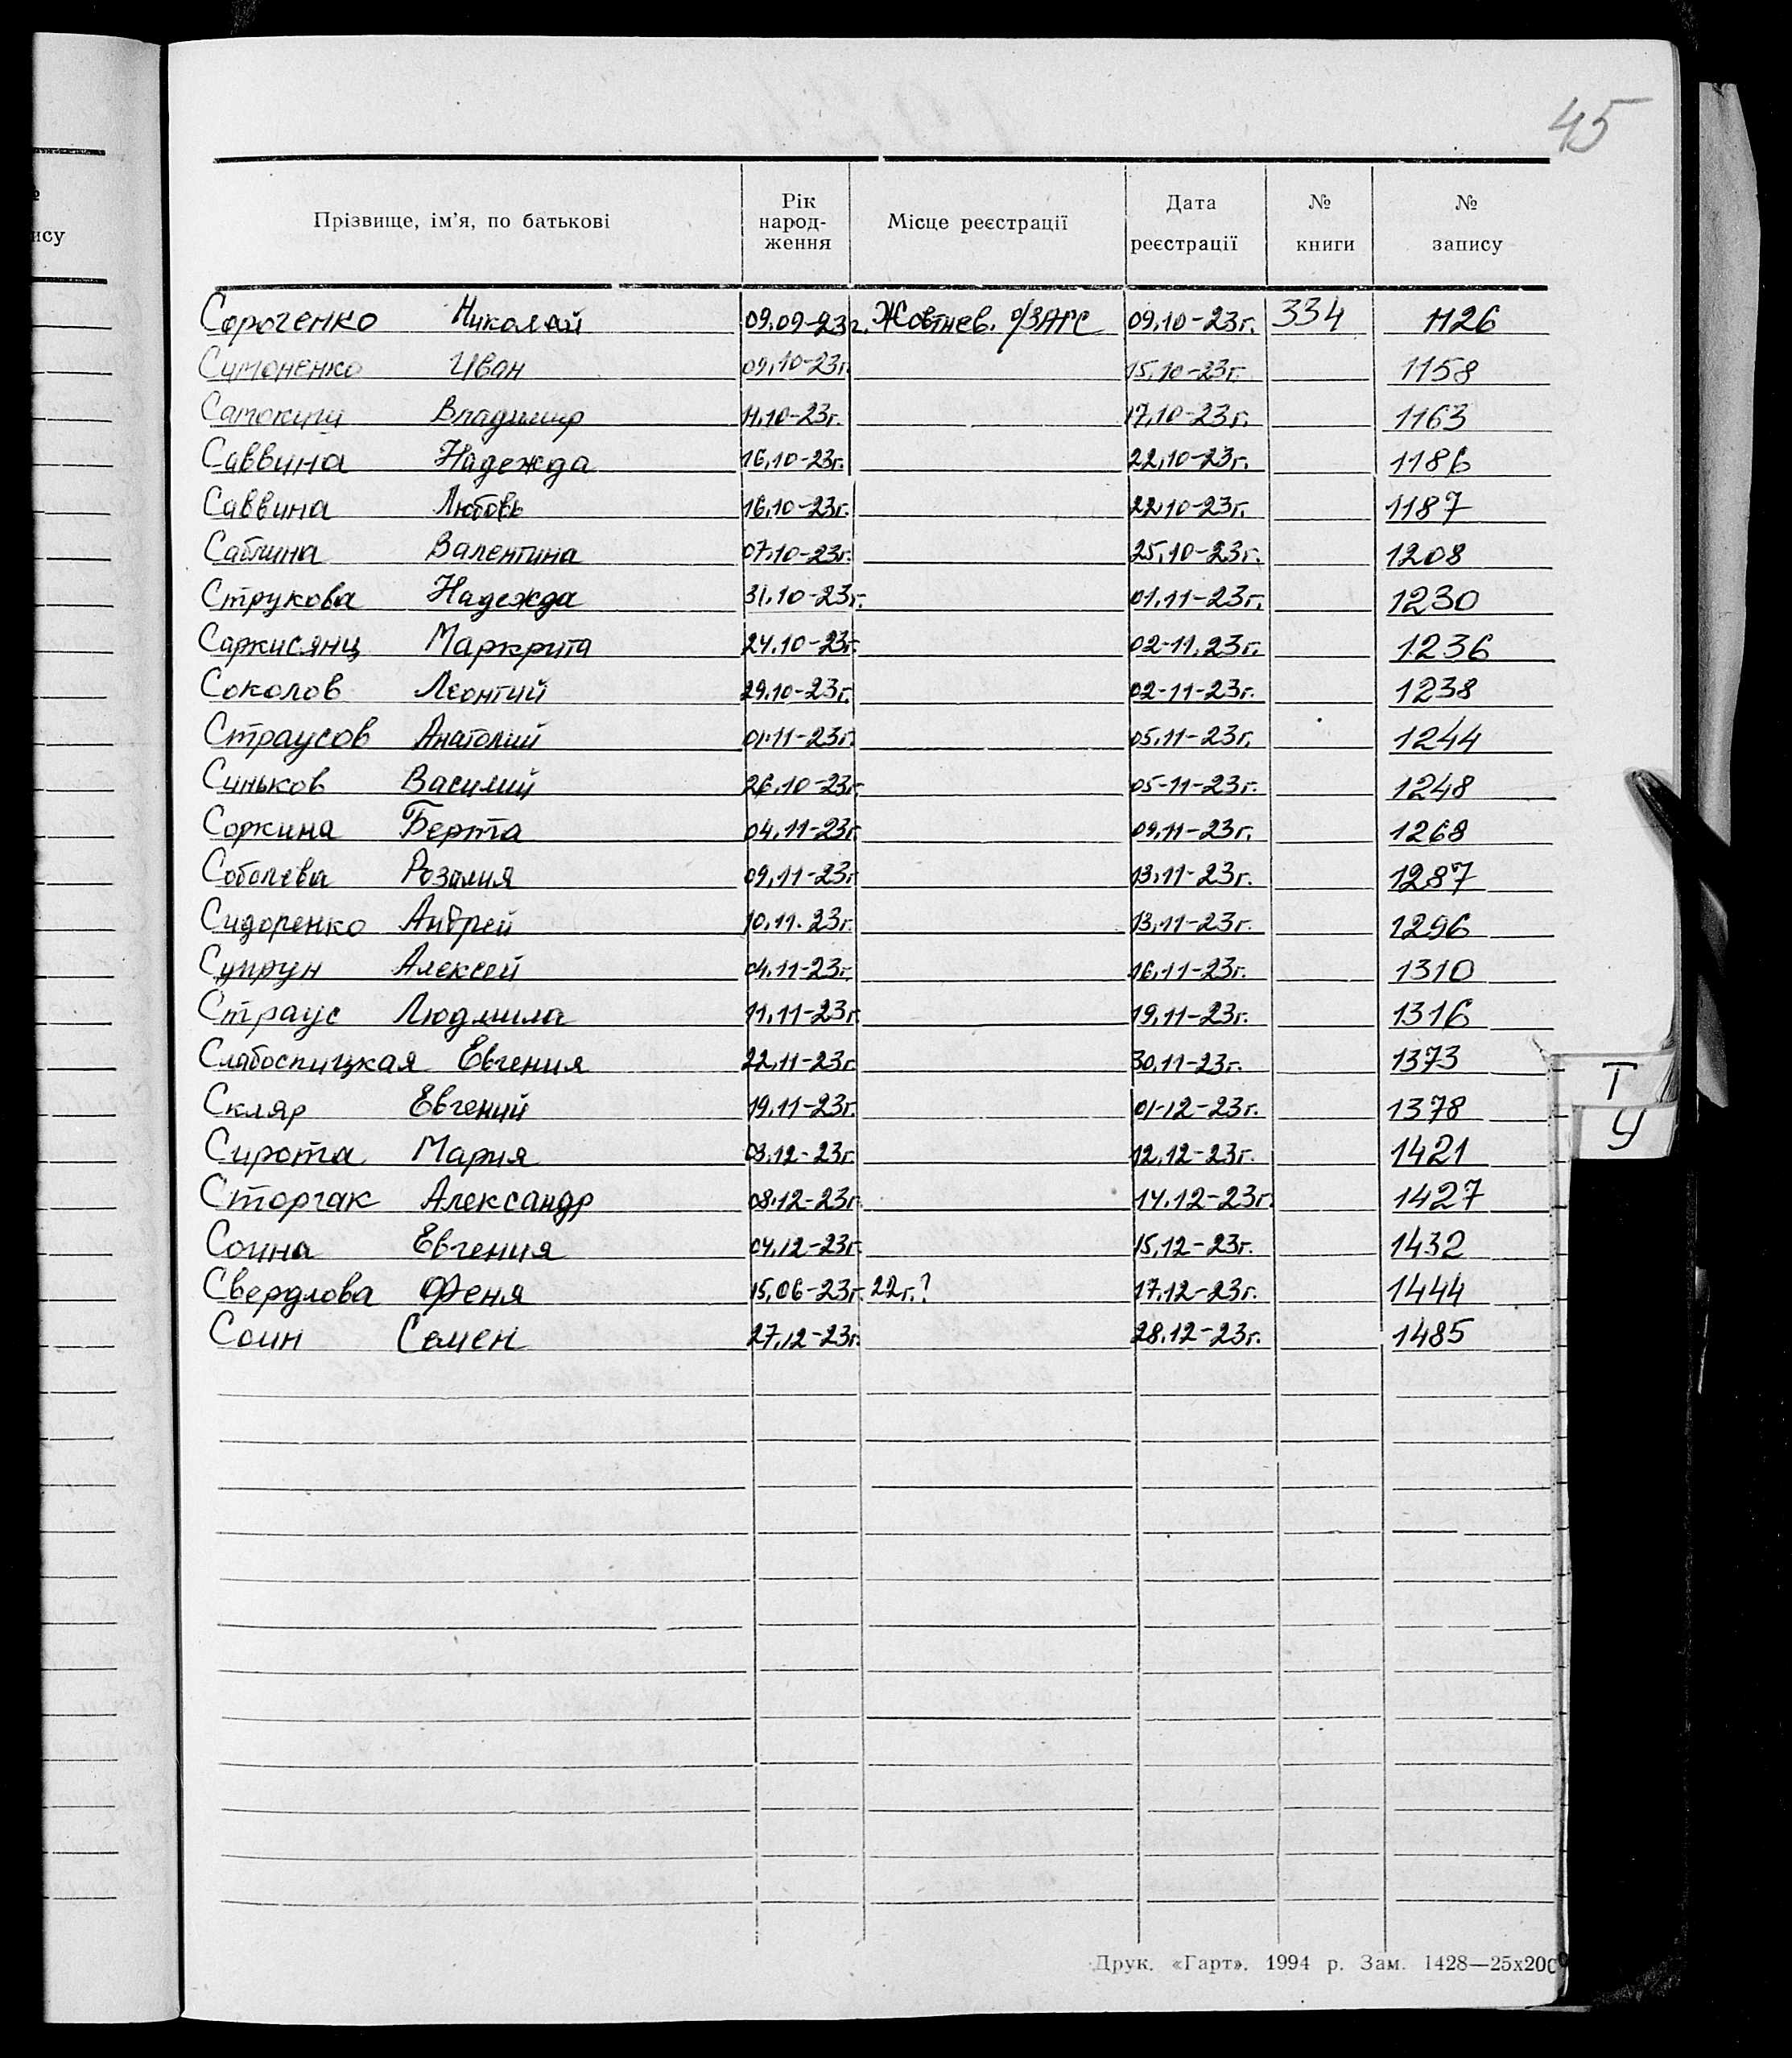 45
№
ису
Прізвище, ім'я, по батькові
Рік
народ-
ження
Місце реєстрації
Дата
реєстрації
№
книги
№
запису
Сороченко Николай 09.09-23г. Жовтнев. о/ЗАГС 09.10-23г. 334 1126
Симоненко Иван 09.10-23г. 15.10-23г. 1158
Владимир 11.10-23г. 17.10-23г. 1163
Саввина Надежда 16.10-23г. 22.10-23г. 1186
Саввина Любовь 16.10-23г. 22.10-23г. 1187
Саблина Валентина 07.10-23г. 25.10-23г. 1208
Струкова Надежда 31.10-23г. 01.11-23г. 1230
Саркисянц Маркрита 24.10-23г. 02-11.23г. 1236
Соколов Леонтий 29.10-23г. 02-11-23г. 1238
Страусов Анатолий 01.11-23г. 05.11-23г. 1244
Синьков Василий 26.10-23г. 05-11-23г. 1248
Соркина Берта 04.11-23г. 09.11-23г. 1268
Соболева Розалия 09.11-23г 13.11-23г. 1287
Сидоренко Андрей 10.11.23г. 13.11-23г. 1296
Супрун Алексей 04.11-23г. 16.11-23г. 1310
Страус Людмила 11.11-23г. 19.11-23г. 1316
Слабоспицкая Евгения 22.11-23г 30.11-23г. 1373
Скляр Евгений 19.11-23г. 01-12-23г. 1378
Сирота Мария 03.12-23г. 12.12-23г. 1421
Сторчак Александр 08.12-23г. 14.12-23г. 1427
Соина Евгения 04.12-23г. 15.12-23г. 1432
Свердлова Феня 15.06-23г. 22г.? 17.12-23г. 1444
Соин Семен 27.12-23г. 28.12-23г. 1485
Т
У
Друк. «Гарт». 1994 р. Зам. 1428—25х200